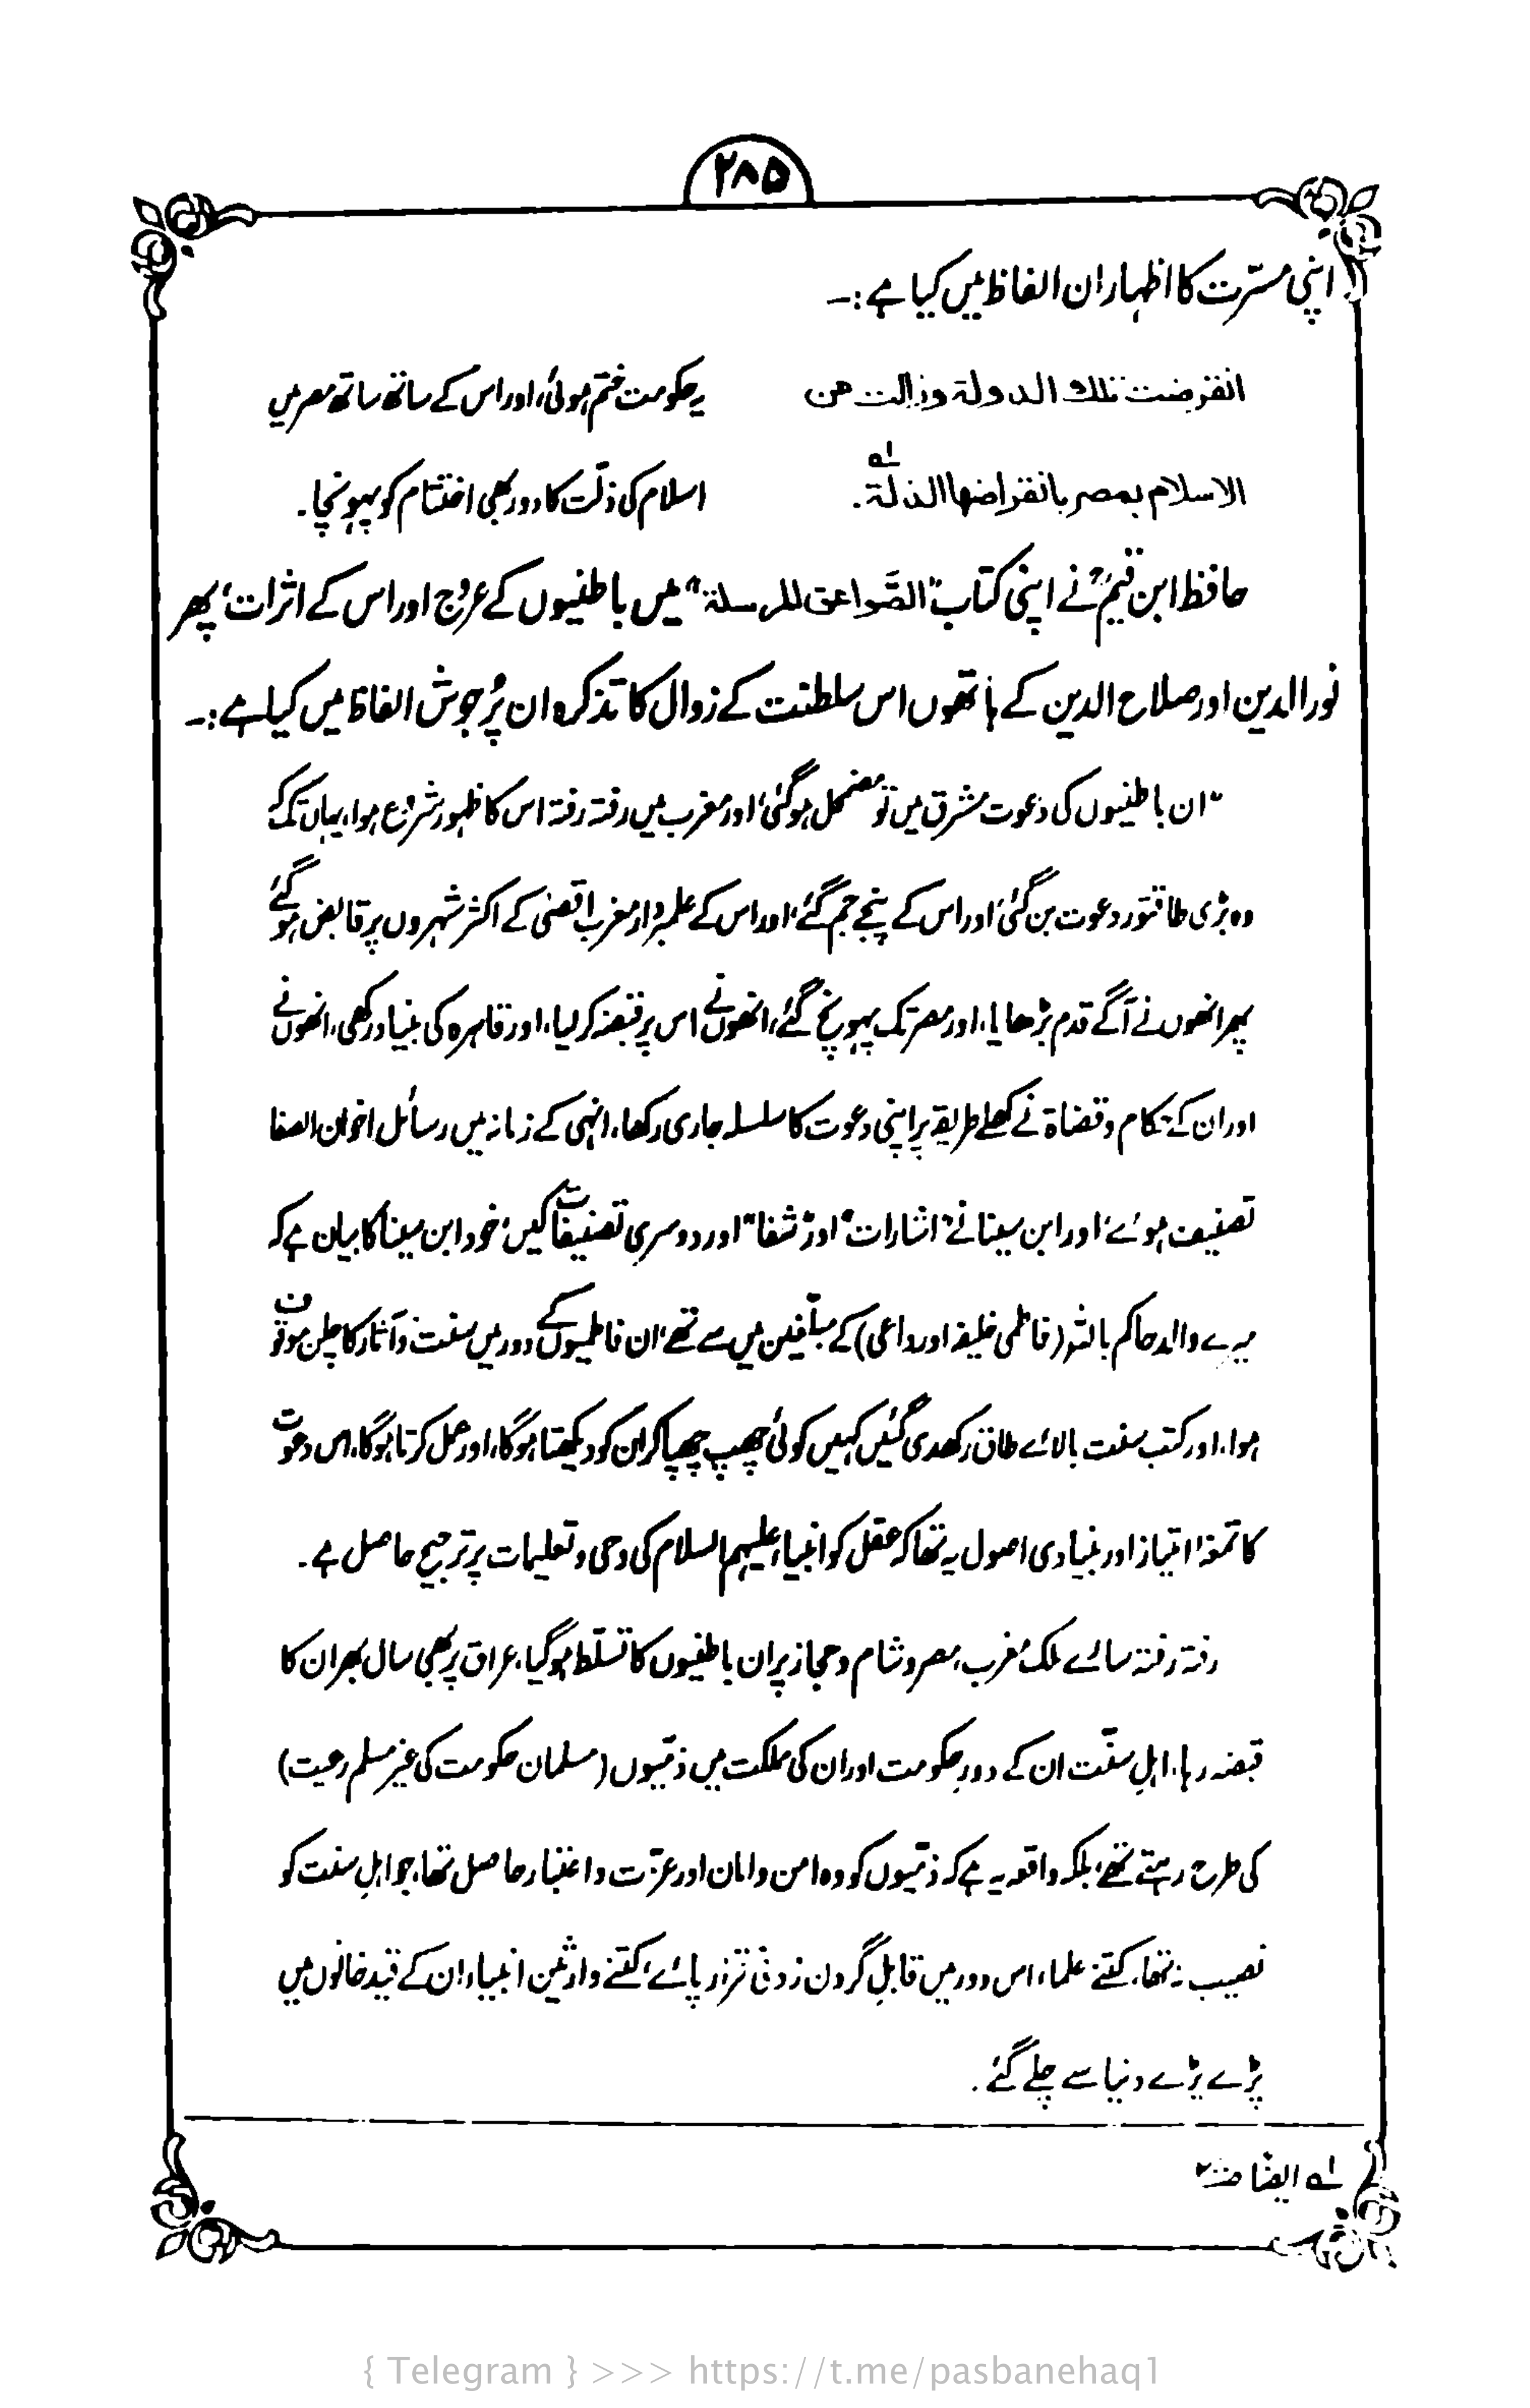 ۲۸۵
اپنی مسرّت کا اظہار ان الفاظ میں کیا ہے :۔
انقرضت تلك الدولة وزالت عن
یہ حکومت ختم ہوئی، اور اس کے ساتھ ساتھ مصر میں
الاسلام بمصر بانقراضها الذلة۔ لہ
اسلام کی ذلّت کا دور بھی اختتام کو پہونچا۔
حافظ ابن قیمؒ نے اپنی کتاب "الصَّواعق المرسلة" میں باطنیوں کے عروج اور اس کے اثرات، پھر
نور الدین اور صلاح الدین کے ہاتھوں اس سلطنت کے زوال کا تذکرہ ان پُرجوش الفاظ میں کیا ہے :۔
"ان باطنیوں کی دعوت مشرق میں تو مضمحل ہوگئی، اور مغرب میں رفتہ رفتہ اس کا ظہور شروع ہوا، یہاں تک کہ
وہ بڑی طاقتور دعوت بن گئی، اور اس کے پنجے جم گئے، اور اس کے علمبردار مغرب اقصٰی کے اکثر شہروں پر قابض ہوگئے
پھر انھوں نے آگے قدم بڑھایا، اور مصر تک پہونچ گئے، انھوں نے اس پر قبضہ کر لیا، اور قاہرہ کی بنیاد رکھی، انھوں نے
اور ان کے حکام و قضاة نے کھلے طریقہ پر اپنی دعوت کا سلسلہ جاری رکھا، انہی کے زمانہ میں رسائل اخوان الصفا
تصنیف ہوئے، اور ابن سینا نے "اشارات" اور "شفا" اور دوسری تصنیفات کیں، خود ابن سینا کا بیان ہے کہ
میرے والد حاکم بالله (فاطمی خلیفہ اور داعی) کے مبلّغین میں سے تھے، ان فاطمیوں کے دور میں سنت و آثار کا چلن موقوف
ہوا، اور کتب سنت بالائے طاق رکھدی گئیں کہیں کوئی چھپ چھپا کر ان کو دیکھتا ہوگا، اور عمل کرتا ہوگا، اس دعوت
کا تمغۂ امتیاز اور بنیادی اصول یہ تھا کہ عقل کو انبیاء علیہم السلام کی وحی و تعلیمات پر ترجیح حاصل ہے۔
رفتہ رفتہ سارے ملک مغرب، مصر و شام و حجاز پر ان باطنیوں کا تسلّط ہوگیا، عراق پر بھی سال بھر ان کا
قبضہ رہا، اہلِ سنّت ان کے دورِ حکومت اور ان کی مملکت میں ذمّیوں (مسلمان حکومت کی غیر مسلم رعیت)
کی طرح رہتے تھے، بلکہ واقعہ یہ ہے کہ ذمّیوں کو وہ امن و امان اور عزّت و اعتبار حاصل تھا، جو اہلِ سنت کو
نصیب نہ تھا، کتنے علماء اس دور میں قابلِ گردن زدنی قرار پائے، کتنے وارثین انبیاء ان کے قید خانوں میں
پڑے پڑے دنیا سے چلے گئے۔
لہ ایضًا
{ Telegram } >>> https://t.me/pasbanehaq1